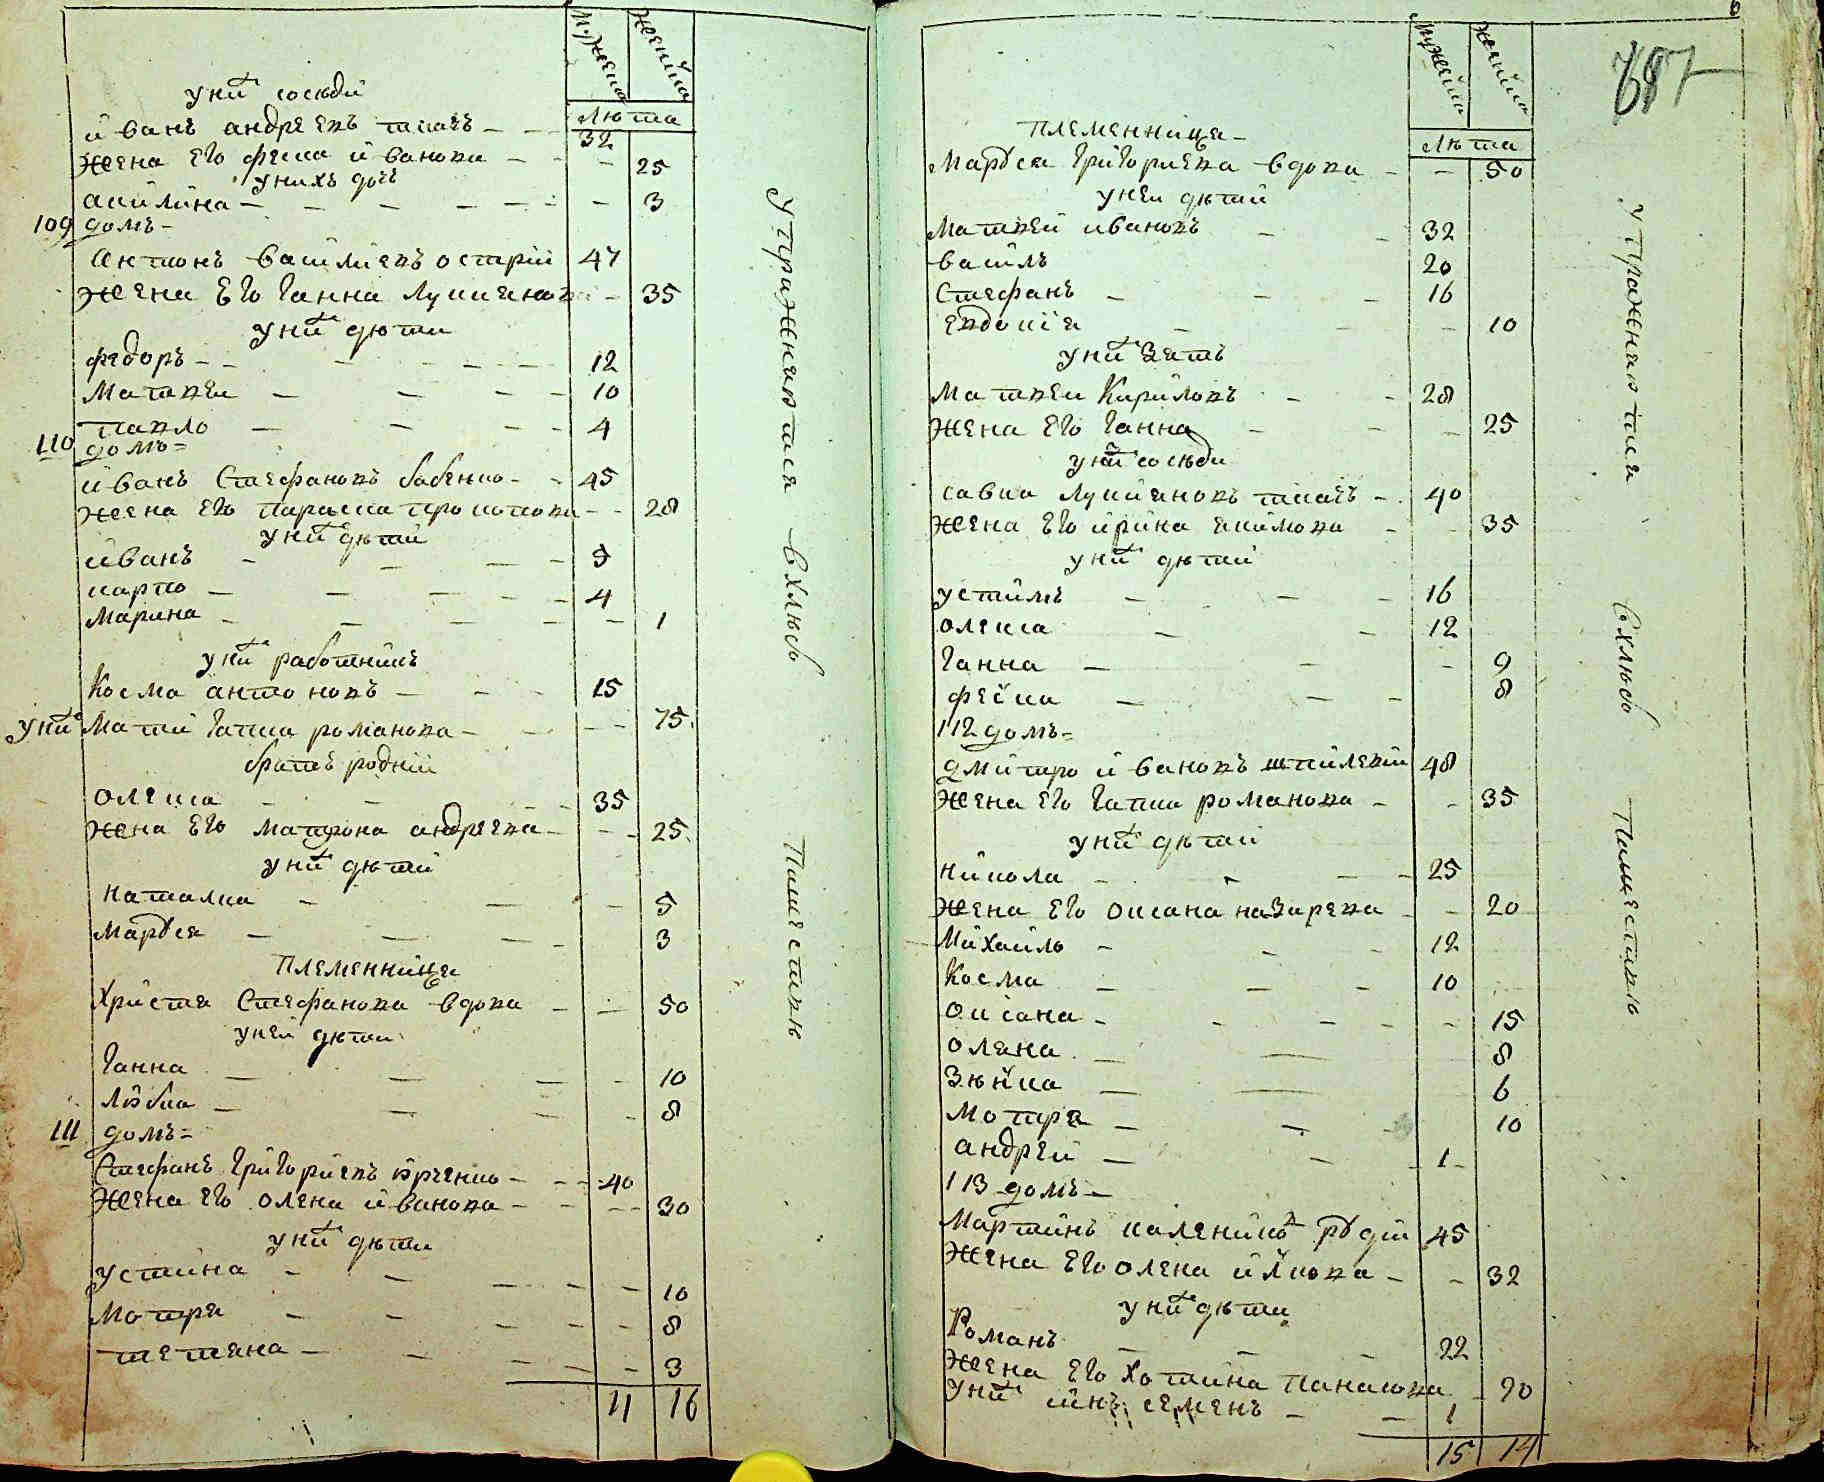 Мужеска Женска
Лѣта
у них сосѣди
иванъ андреевъ ткачъ — 32
жена его феска иванова — — 25
у нихъ дочъ
акилина — — 3
109 домъ
антонъ василиевъ острий 47
жена его ганна лукиянова — 35
у них дѣти
федоръ — 12
Матвеи — 10
павло — 4
110 домъ
иванъ Стефановъ бабенко — 45
жена его параска прокопова — — 28
у них дѣти
иванъ — 5
карпо — 4
Марина — — 1
у них работникъ
Косма антоновъ — 15
у них Мати гапка романова — — 75
братъ родний
олекса — 35
жена его матрона андреева — — 25
у них дѣти
наталка — 5
Марѳея — 3
племенница
Христя Стефанова вдова — — 50
у неи дѣти
Ганна — 10
Любка — 8
111 домъ
Стефанъ григориевъ юрченко — 40
жена его олена иванова — — 30
у них дѣти
устина — 10
Мотря — 8
тетяна — 3
11 16
упражняется в хлѣбо пашествѣ
6
687
Мужеска Женска
Лѣта
племенница
Марѳея григориева вдова — — 50
у неи дѣти
Матвеи ивановъ — 32
василь 20
Стефанъ — 16
евдокия — 10
у них зять
Матвеи Кириловъ — 28
жена его ганна — 25
у них сосѣди
савка лукияновъ ткачъ — 40
жена его ирина екимова — — 35
у них дѣти
устимъ — 16
олекса — 12
ганна — 9
феска — 8
112 домъ
дмитро ивановъ 48
жена его гапка романова — — 35
у них дѣти
никола — 25
жена его оксана назарева — — 20
Михайло — 12
Косма — 10
оксана — 15
олена — 8
Зѣнка — 6
Мотря — 10
андреи — 1
113 домъ
Мартинъ калениковъ рудий 45
жена его олена илкова — — 32
у них дѣти
Романъ — 22
жена его хотина панасова — 20
у них синъ семенъ — 1
15 14
упражняется в хлѣбо пашествѣ